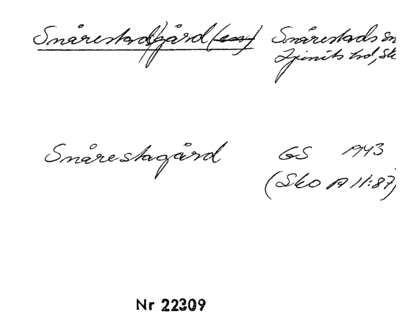 Snårestad/gård Snårestads sn
Ljunits hd, Sk
Snårestagård GS 1943
(Sko A 11:87)
Nr 22309